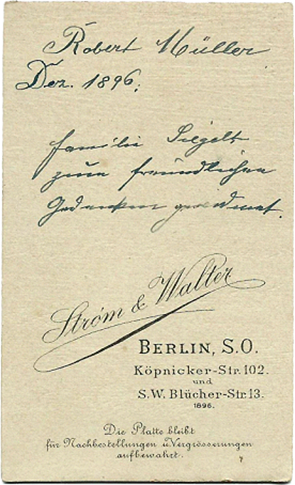 Robert Müller
Dez. 1896.
Familie Siegelt
zum freundlichen
Gedenken gewidmet.
Strøm & Walter
BERLIN, S.O.
Köpnicker-Str. 102.
und
S.W. Blücher-Str. 13.
1896.
Die Platte bleibt
für Nachbestellungen u. Vergrösserungen
aufbewahrt.